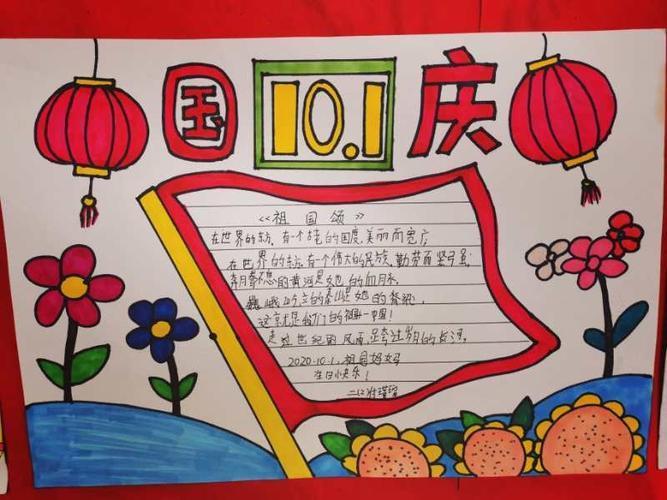 国 10.1 庆
《祖国颂》
在世界的东方,有一个古老的国度,美丽而宽广
在世界的东方,有一个伟大的民族,勤劳而坚强
奔腾不息的黄河是她的血脉
巍峨屹立的泰山是她的脊梁,
这就是我们的祖国—中国!
走过世纪的风雨,跨过岁月的长河。
2020.10.1.祖国妈妈
生日快乐!
二(2)